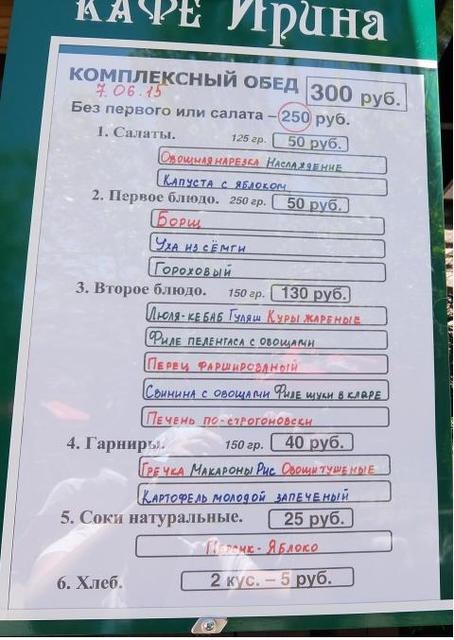 КАФЕ Ирина
КОМПЛЕКСНЫЙ ОБЕД 300 руб.
7.06.15
Без первого или салата – 250 руб.
1. Салаты. 125 гр. 50 руб.
Овощная нарезка Наслаждение
Капуста с яблоком
2. Первое блюдо. 250 гр. 50 руб.
Борщ
Уха из сёмги
Гороховый
3. Второе блюдо. 150 гр. 130 руб.
Люля-кебаб Гуляш Куры жареные
Филе пеленгаса с овощами
Перец фаршированый
Свинина с овощами Филе щуки в кларе
Печень по-строгоновски
4. Гарниры. 150 гр. 40 руб.
Гречка Макароны Рис Овощи тушеные
Картофель молодой запеченый
5. Соки натуральные. 25 руб.
Персик - Яблоко
6. Хлеб. 2 кус. – 5 руб.